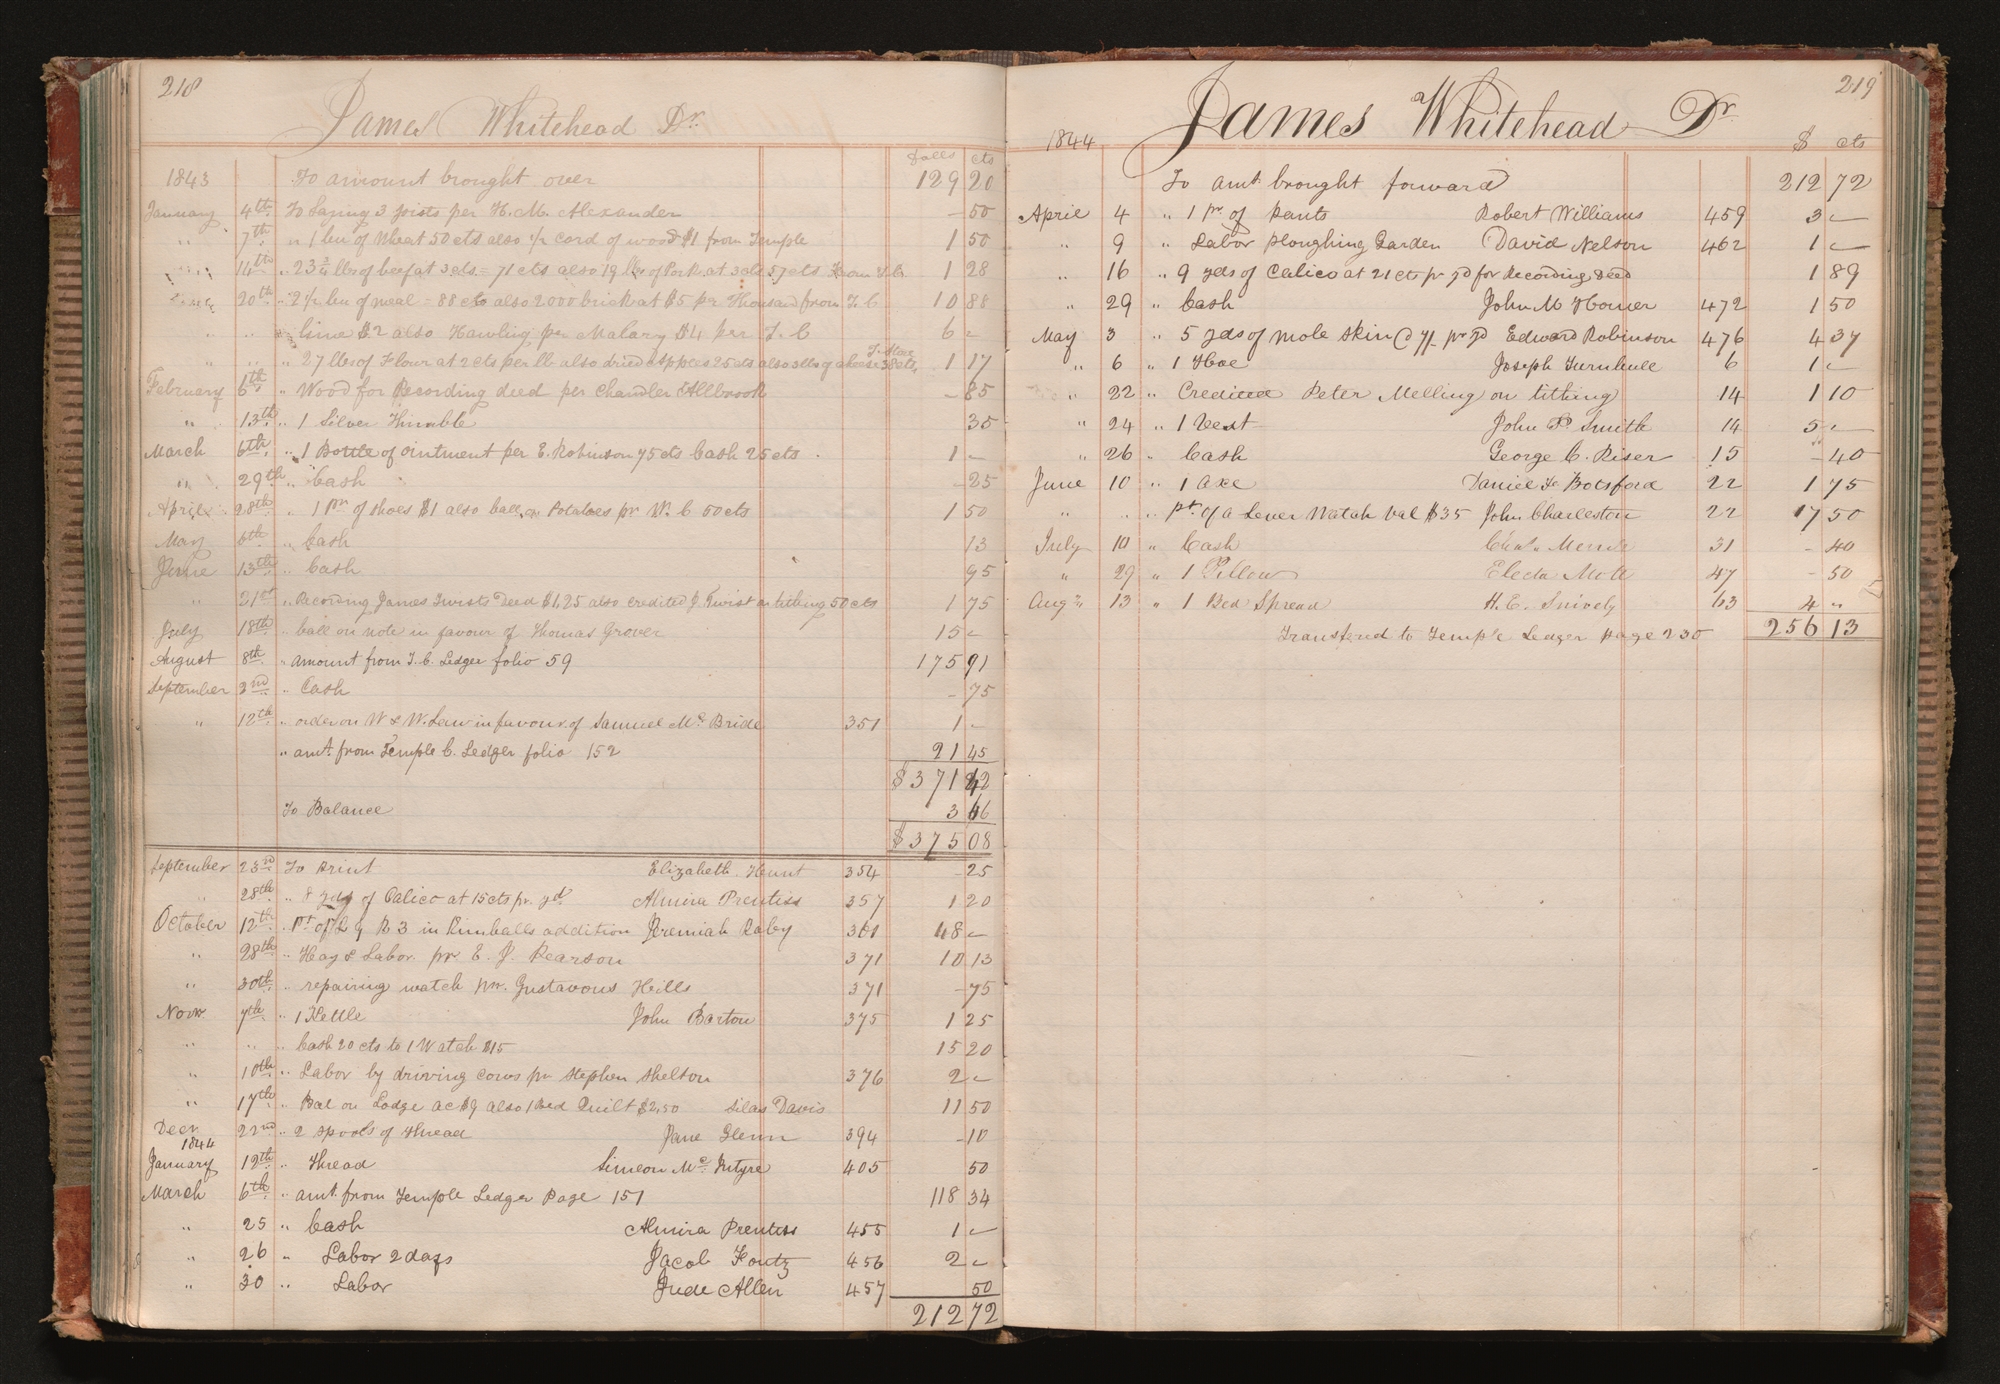 218
James Whitehead Dr.
Dolls cts
1843 To amount brought over 129 20
January 4th To Laying 3 joists per H. M. Alexander - 50
" 7th " 1 bu of Wheat 50 cts also 1/2 cord of wood $1 from Temple 1 50
" 14th " 23 3/4 lbs of beef at 3 cts = 71 cts also 19 lbs of Pork at 3 cts 57 cts from T. C. 1 28
" 20th " 2 1/2 bu of meal = 88 cts also 2000 brick at $5 per Thousand from T. C 10 88
" " " lime $2 also Hawling per Malary $4 per T. C 6 -
" " " 27 lbs of Flour at 2 cts per lb also dried Apples 25 cts also 3 lbs of cheese 38 cts T. Store 1 17
February 6th " Wood for Recording deed per Chandler Allbrook - 85
" 13th " 1 Silver Thimble 35
March 6th " 1 Bottle of ointment per E. Robinson 75 cts Cash 25 cts 1 -
" 29th " Cash - 25
April 28th " 1 pr of shoes $1 also ball. on Potatoes pr W. C 50 cts 1 50
May 6th " Cash 13
June 13th " Cash 95
" 21st " Recording James Twists Deed $1,25 also credited J. Twist on tithing 50 cts 1 75
July 18th " ball on note in favour of Thomas Grover 15 -
August 8th " amount from T. C. Ledger folio 59 175 91
September 2nd " Cash - 75
" 12th " order on W & W. Law in favour of Samuel Mc Bride 351 1 -
" amt. from Temple C. Ledger folio 152 21 45
$371 42
To Balance 3 66
$375 08
September 23rd To Print Elizabeth Hunt 354 - 25
" 28th " 8 yds of Calico at 15 cts pr. yd Almira Prentiss 357 1 20
October 12th " Pt of L 9 B 3 in Kimballs addition Jeremiah Raby 361 48 -
" 28th " Hay & Labor pr E. J. Pearson 371 10 13
" 30th " repairing watch pr. Gustavous Hills 371 - 75
Novr 7th " 1 Kettle John Barton 375 1 25
" " " Cash 20 cts to 1 Watch $15 15 20
" 10th " Labor by driving cows pr Stephen Shelton 376 2 -
" 17th " Bal on Lodge ac $9 also 1 Bed Quilt $2,50 Silas Davis 11 50
Decr 22nd " 2 spools of thread Jane Glenn 394 - 10
1844
January 12th " Thread Simeon Mc Intyre 405 50
March 6th " amt. from Temple Ledger Page 151 118 34
" 25 " Cash Almira Prentiss 455 1 -
" 26 " Labor 2 days Jacob Foutz 456 2 -
" 30 " Labor Jude Allen 457 50
212 72
219
James Whitehead Dr.
1844 $ cts
To amt. brought forward 212 72
April 4 " 1 pr of Pants Robert Williams 459 3 -
" 9 " Labor ploughing Garden David Nelson 462 1 -
" 16 " 9 yds of Calico at 21 cts pr yd for Recording Deed 1 89
" 29 " Cash John M Horner 472 1 50
May 3 " 5 yds of mole skin @ 7/- pr yd Edward Robinson 476 4 37
" 6 " 1 Hoe Joseph Turnbull 6 1 -
" 22 " Credited Peter Melling on tithing 14 1 10
" 24 " 1 Vest John P. Smith 14 5 -
" 26 " Cash George C. Riser 15 - 40
June 10 " 1 axe Daniel Botsford 22 1 75
" " " pt. of a Lever Watch val $35 John Charleston 22 17 50
July 10 " Cash Chas. Merrill 31 - 40
" 29 " 1 Pillow Electa Mott 47 - 50
Aug 13 " 1 Bed Spread H. E. Snively 63 4 "
Transfered to Temple Ledger page 230 256 13